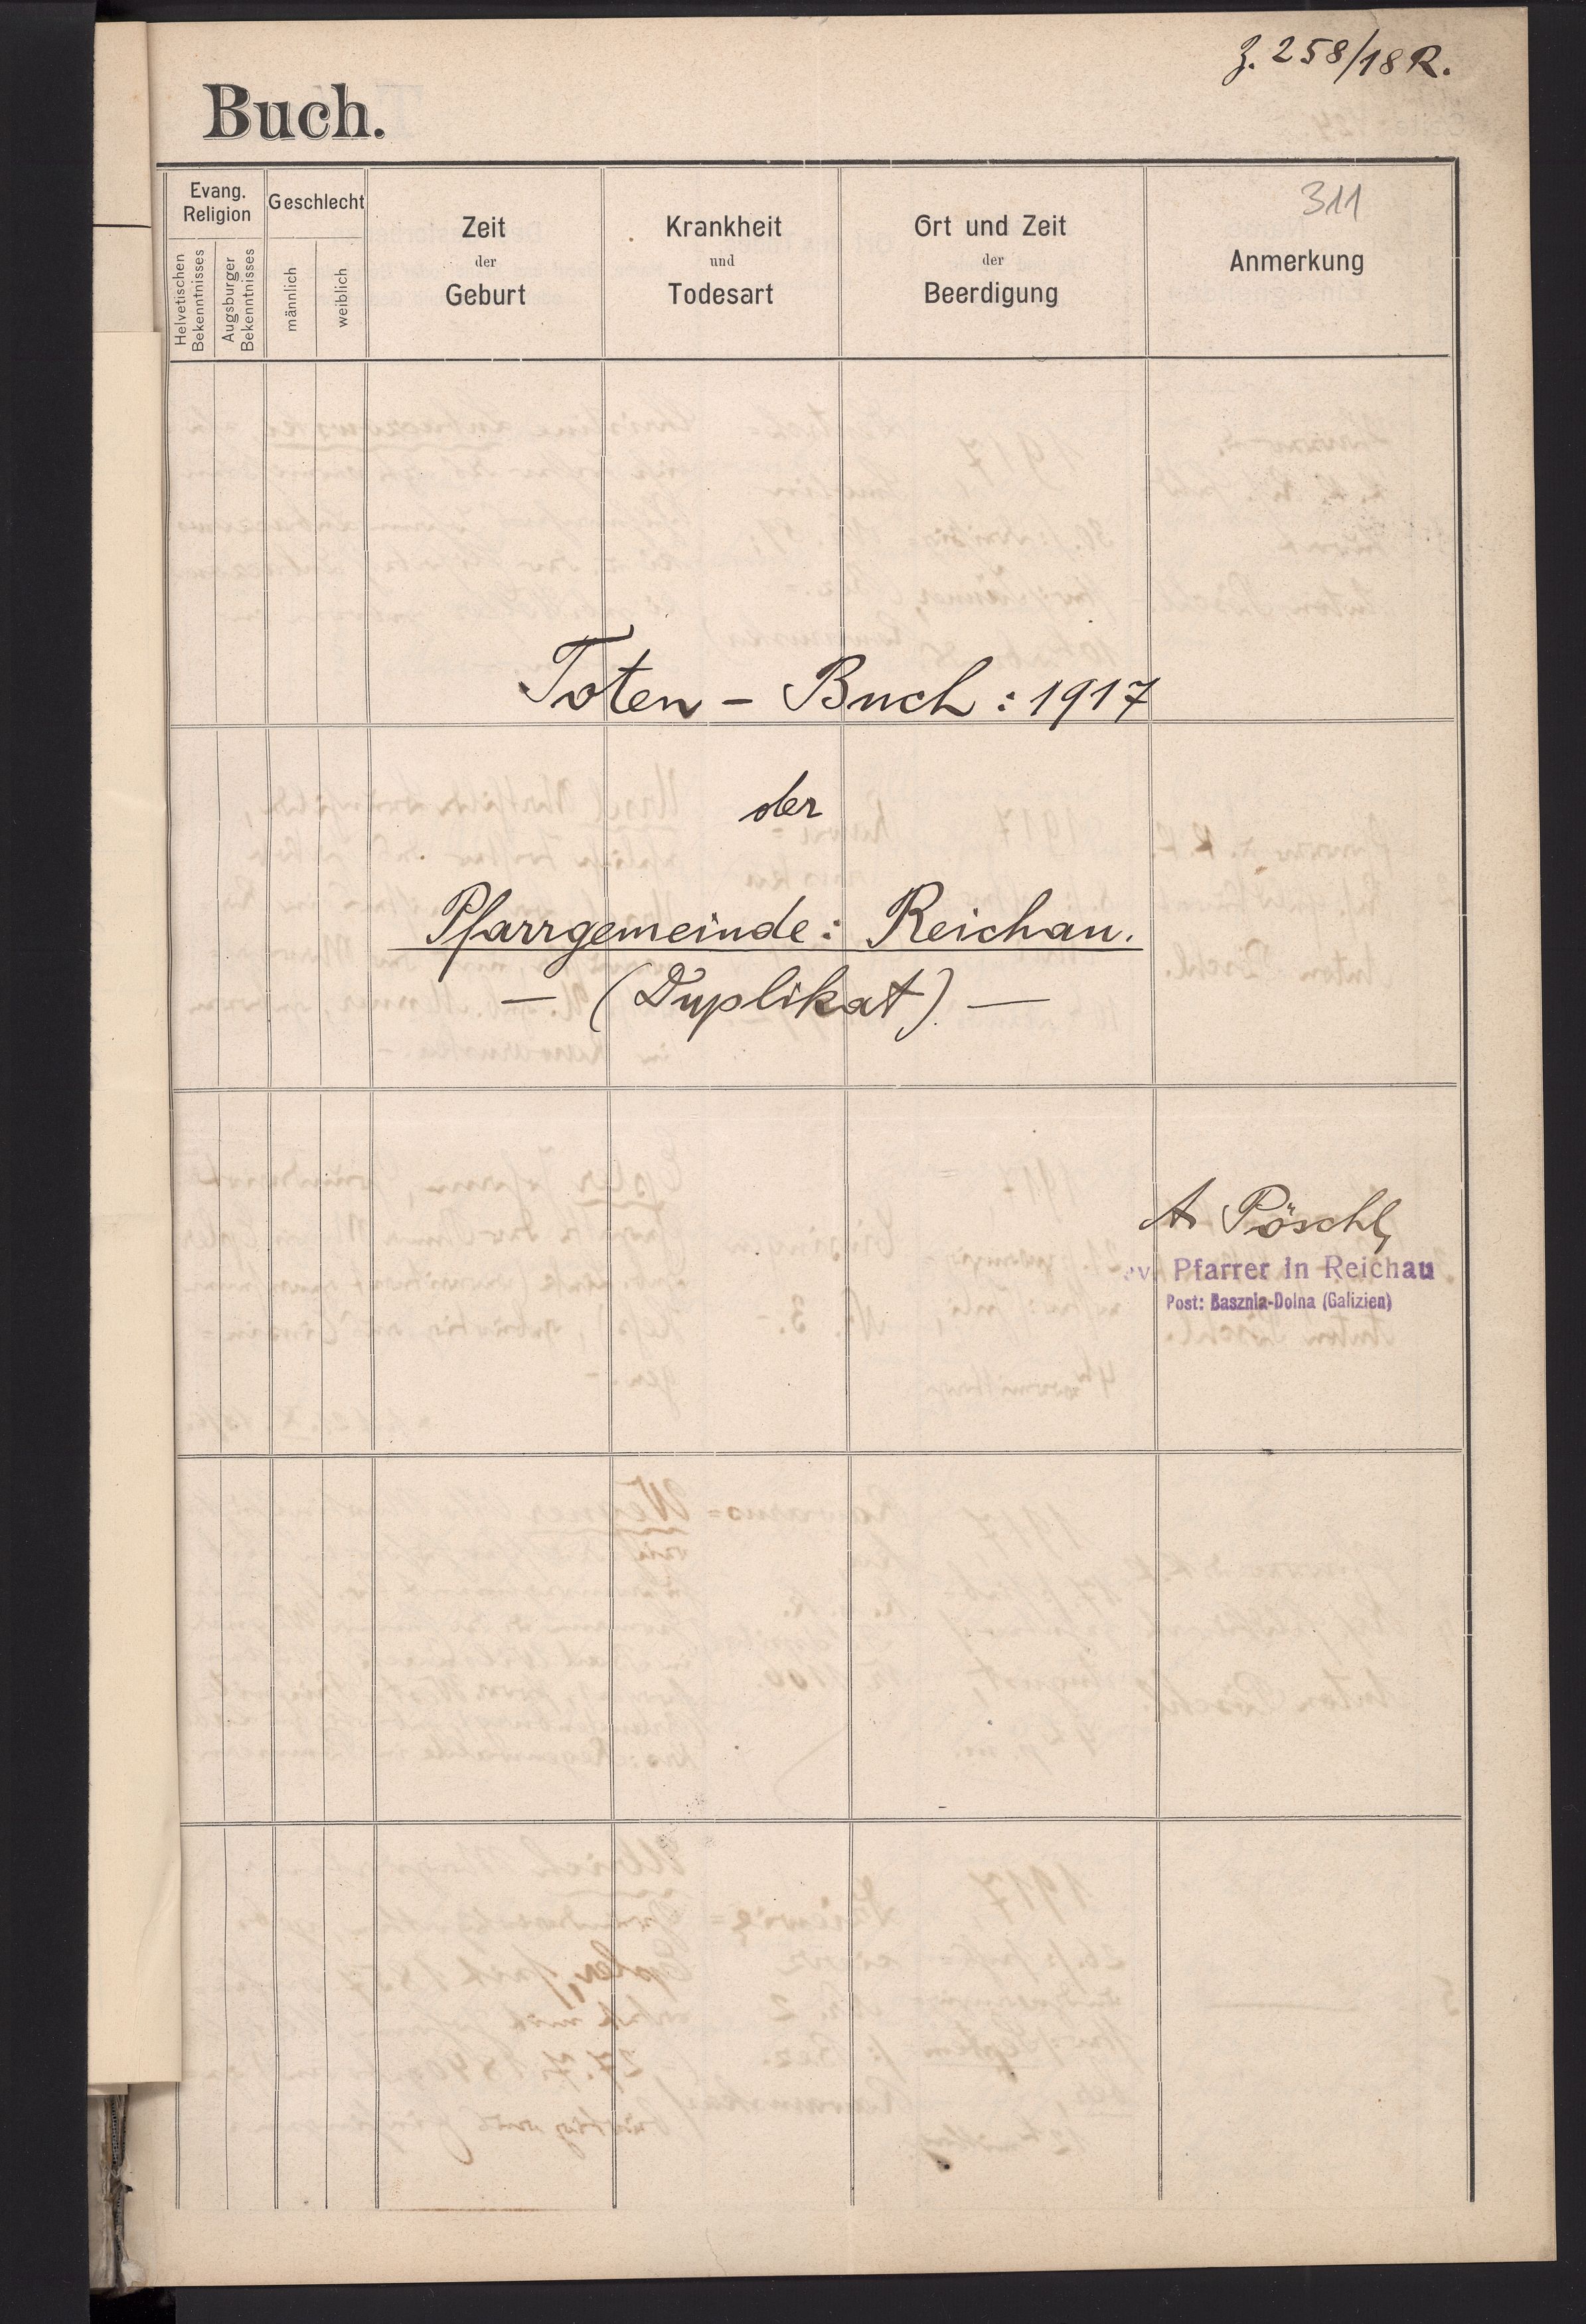 Z. 258/18 R.
Buch.
311
Evang. Religion
Helvetischen Bekenntnisses
Augsburger Bekenntnisses
Geschlecht
männlich
weiblich
Zeit
der
Geburt
Krankheit
und
Todesart
Ort und Zeit
der
Beerdigung
Anmerkung
Toten - Buch : 1917
der
Pfarrgemeinde: Reichau.
— (Duplikat). —
A Pöschl,
ev. Pfarrer in Reichau
Post: Basznia-Dolna (Galizien)